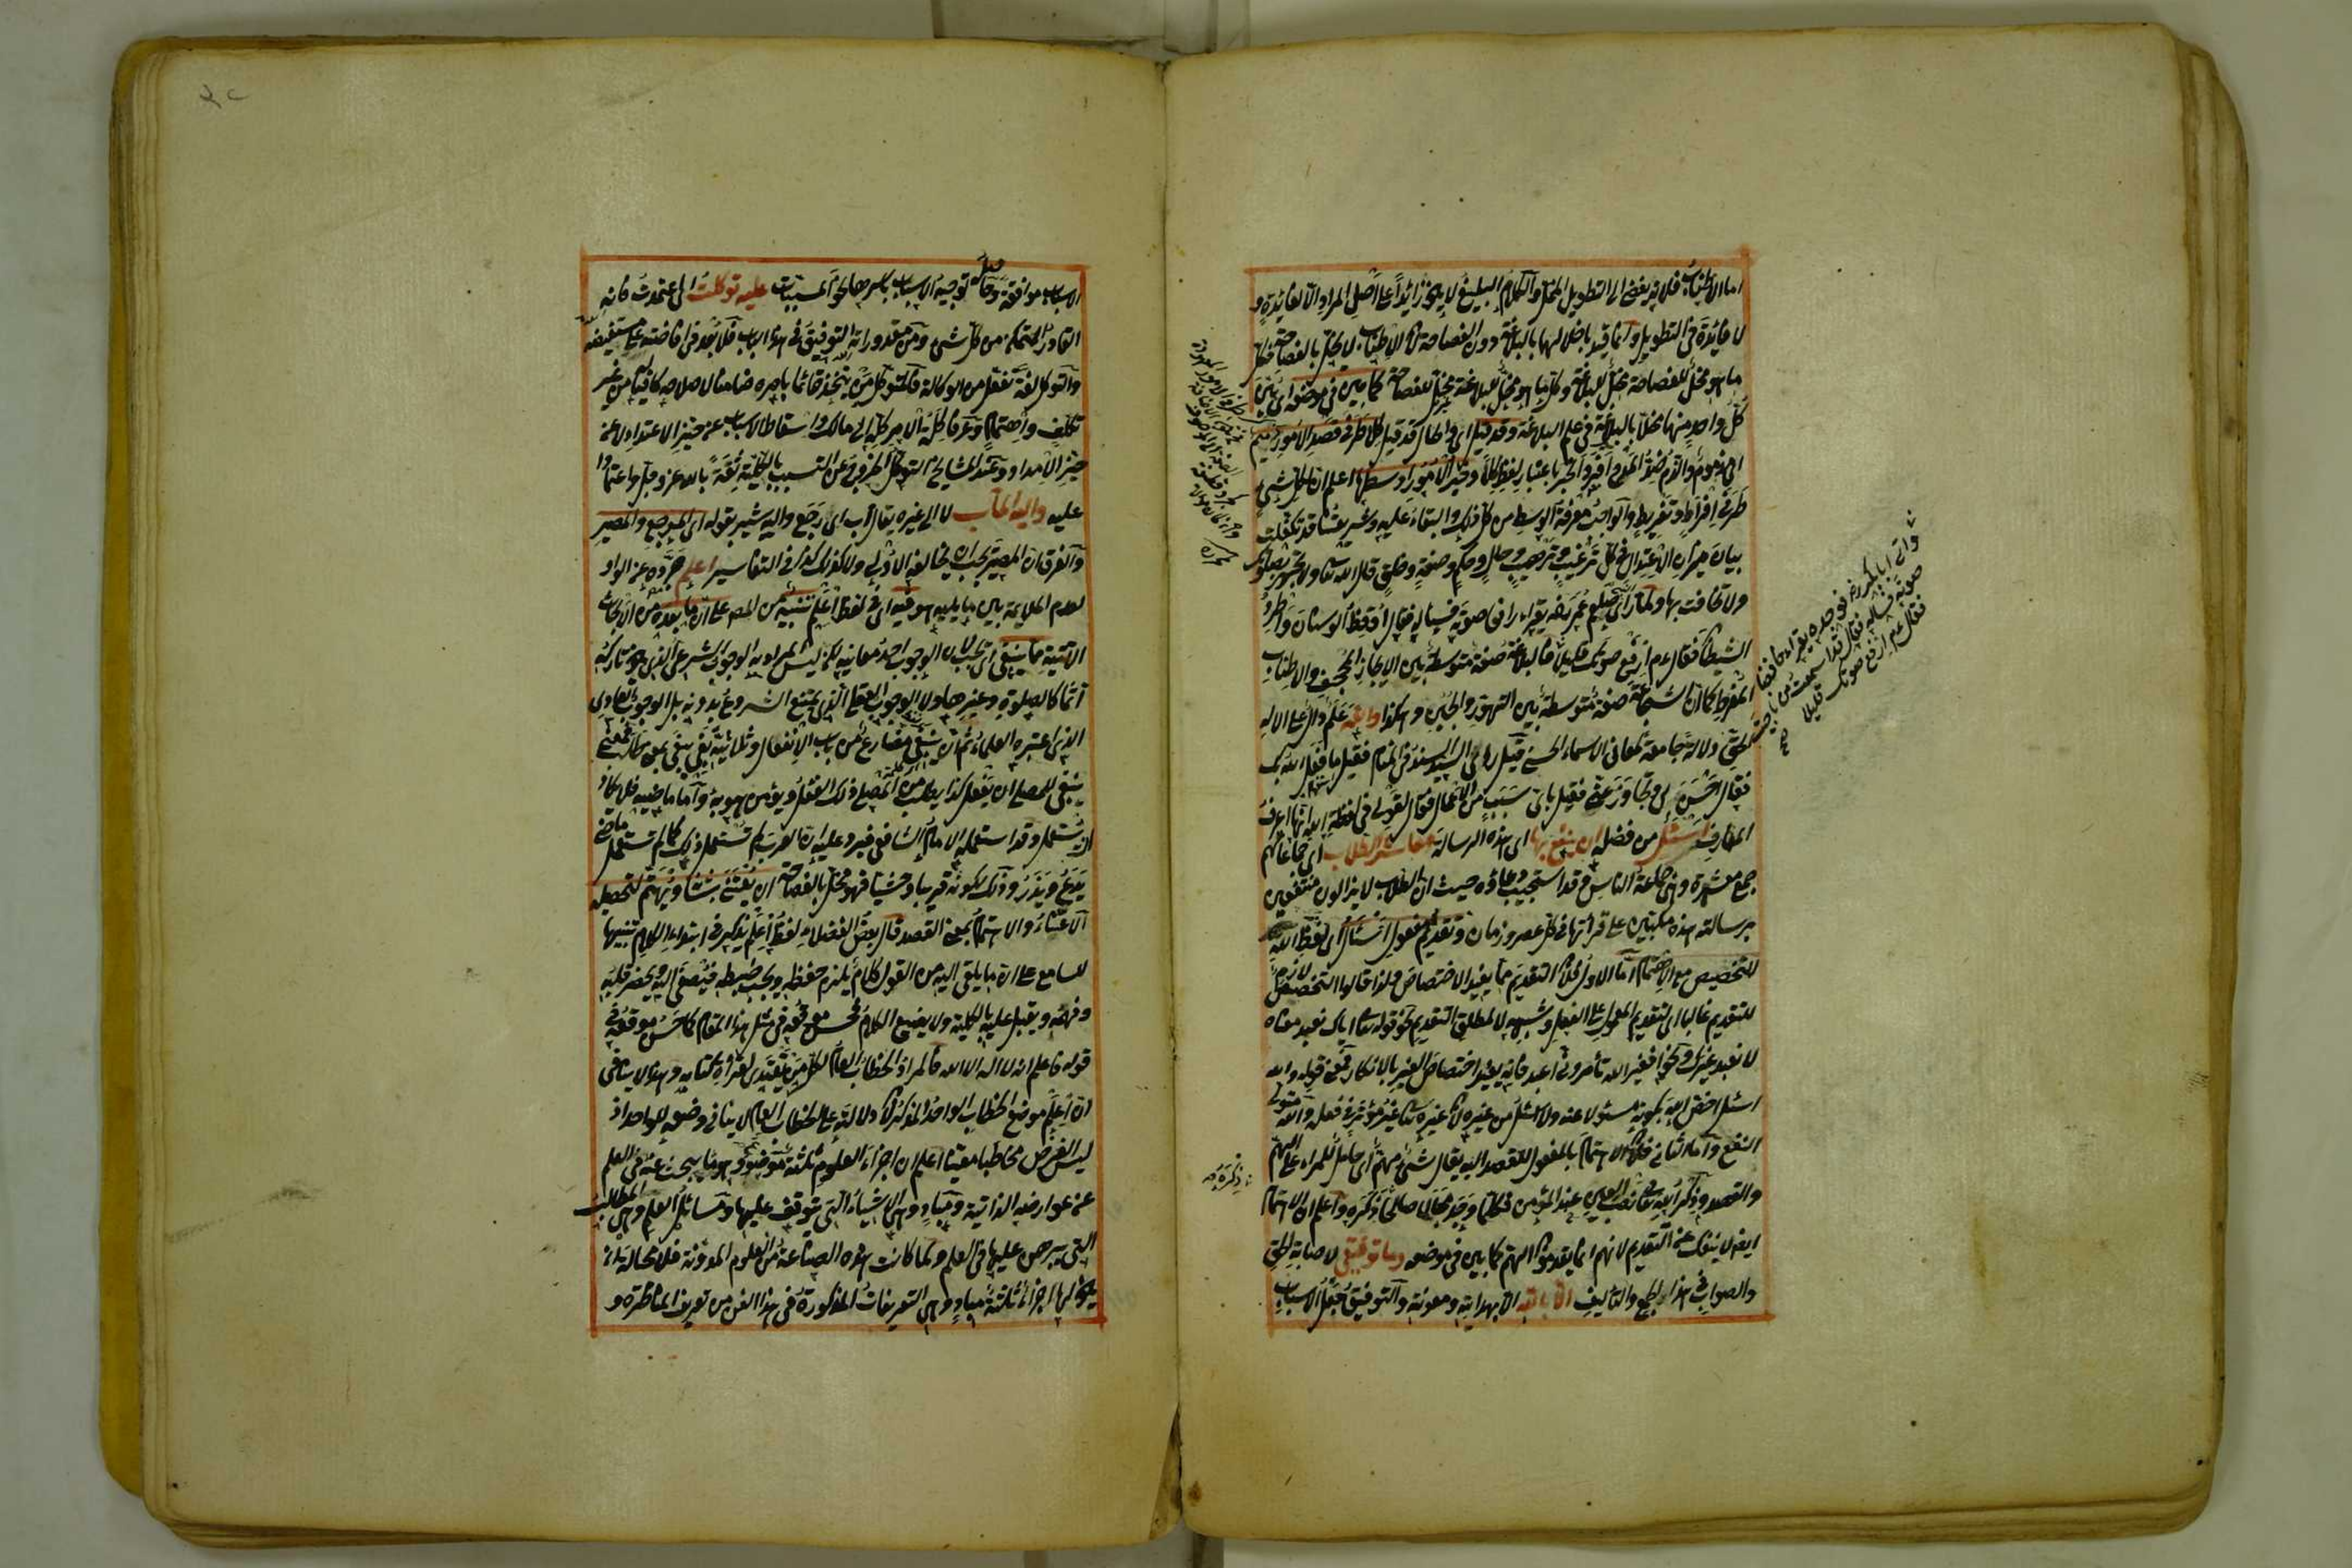 اما الاطناب فلانه يفضي الى التطويل المخل والكلام البليغ لا يكون زائدا على اصل المراد الا لفائدة و
لا فائدة في التطويل وانما قيد باخلالها بالبلاغة دون الفصاحة لان الاطناب لا يخل بالفصاحة فكل
ما هو مخل للفصاحة مخل للبلاغة وكل ما هو مخل للبلاغة غير مخل للفصاحة كما بين في موضعه اي بين
كل واحد منهما مخلا بالبلاغة في علم البلاغة وقد قيل اي والحال قد قيل كلا طرفي قصد الامور ذميم
اي مذموم والذم ضد المدح افرد الخبر باعتبار لفظ كلا وخير الامور اوسطها اعلم ان لكل شيء
طرفي افراط وتفريط والواجب معرفة الوسط من كل ذلك والبقاء عليه وشريعتنا قد تكفلت
بيان ميزان الاعتدال في كل ترغيب وترهيب وحال وحكم وصفة وخلق قال الله تعالى ولا تجهر بصلوتك
ولا تخافت بها ولما رأى صلعم عمر رضه يقرأ رافعا صوته فسأله فقال اوقظ الوسنان واطرد
الشيطان فقال عم ارفع صوتك قليلا فالبلاغة صفة متوسطة بين الايجاز المجحف والاطناب
المفرط كما ان الشجاعة صفة متوسطة بين التهور والجبن وهكذا والله علم دال على الاله
الحق دلالة جامعة لمعاني الاسماء الحسنى قيل رؤي السيد السند في المنام فقيل ما فعل الله بك
فقال احسن لي وتجاوز عني فقيل باي سبب من الاعمال فقال لقولي في لفظة الله انها اعرف
المعارف اسئل من فضله ان ينفع بها اي بهذه الرسالة معاشر الطلاب اي جماعاتهم
جمع معشرة وهي جماعة الناس وقد استجيب دعاؤه حيث ان الطلاب لا يزالون منتفعين
برسالته هذه مكبين على قرائتها في كل عصر وزمان وتقديم مفعول اسئل اي لفظ الله
للتخصيص مع الاهتمام اما الاول فلان التقديم مما يفيد الاختصاص ولذا قالوا التخصيص لازم
للتقديم غالبا اي لتقديم المعمول على الفعل وشبهه لا لمطلق التقديم نحو قوله تعالى اياك نعبد معناه
لا نعبد غيرك ونحو افغير الله تأمروني اعبد فانه يفيد اختصاص الغير بالانكار فمعنى قوله والله
اسئل اخص الله بكونه مسئولا عنه ولا اسئل من غيره لان غيره تعالى غير مؤثر في فعل والله متولي
النفع واما الثاني فلان الاهتمام بالمفعول للقصد اليه يقال شيء مهم اي حامل للمراد على الهم
والقصد وذكر الله تعالى نصب العين عند المؤمن فكلما وجد مجالا صالحا ذكره واعلم ان الاهتمام
ايضا لا ينفك عن التقديم لانهم انما يقدمون الاهم كما بين في موضعه وما توفيقي لاصابة الحق
والصواب في هذا الجمع والتأليف الا بالله الا بهدايته ومعونته والتوفيق جعل الاسباب
واتى ابا بكر رض فوجده يقرأ مخافتا
صوته فسأله فقال قد اسمعت من ناجيته
فقال عم ارفع صوتك قليلا
الاسباب موافقة وحاصله توجيه الاسباب باسرها نحو المسببات عليه توكلت اي اعتمدت فانه
القادر المتمكن من كل شيء ومن مقدوراته التوفيق في هذا الباب فلا بعد في افاضته على مستفيضه
والتوكل لغة تفعل من الوكالة فالمتوكل من يتخذ قائما بامره ضامنا لاصلاحه كافيا من غير
تكلف واهتمام وعرفا كلة الامر كله الى مالكه واسقاط الاسباب عن حيز الاعتداد لا عن
حيز الامداد وعند المشايخ التوكل الخروج عن التسبب بالكلية ثقة بالله عز وجل واعتمادا
عليه واليه المآب لا الى غيره يقال آب اي رجع واليه يشير بقوله اي المرجع والمصير
والفرق ان المصير يجب ان يخالف الاول ولا كذلك كذا في التفاسير اعلم جرده عن الواو
لعدم الملايمة بين ما يليه هو فيه اي في لفظ اعلم تنبيه من المص على ان ما بعده من الابحاث
الآتية مما ينبغي اي يجب لان الوجوب احد معانيه لكن ليس المراد به الوجوب الشرعي الذي هو تاركه
آثما كالصلوة وغيرها ولا الوجوب العقلي الذي يمتنع الشروع بدونه بل الوجوب العادي
الذي اعتبره العلماء ثم ان ينبغي مضارع من باب الانفعال وثلاثيه بغى يبغي بمعنى طلب فمعنى
ينبغي للمصلي ان يفعل كذا يطلب من المصلي ذلك الفعل ويؤمن هو به واما ماضيه فلا يكاد
ان يستعمل وقد استعمله الامام الشافعي فيرد عليه ان العرب لم تستعمل ذلك كما لم تستعمل ماضي
يدع ويذر وذلك لكونه غريبا وحشيا فهو مخل بالفصاحة ان يعتنى بشانه ويهتم لتحصيله
الاعتناء والاهتمام بمعنى القصد قال بعض الفضلاء لفظ اعلم يذكر في ابتداء الكلام تنبيها
للسامع على ان ما يلقى اليه من القول كلام يلزم حفظه ويجب ضبطه فيصغى اليه ويحضر قلبه
وفهمه ويقبل عليه بالكلية ولا يضيع الكلام فحسن موقعه في مثل هذا المقام كما حسن موقعه في
قوله فاعلم انه لا اله الا الله فالمراد الخطاب العام لكل من يتصدى لقراءة كتابه وهذا لا ينافي
ان اعلم موضع الخطاب الواحد المذكر لان دلالته على الخطاب العام لا ينافي وضعه للواحد اذ
ليس الغرض مخاطبا معينا اعلم ان اجزاء العلوم ثلثة موضوع وهو ما يبحث عنه في العلم
عن عوارضه الذاتية ومباد وهي الاشياء التي يتوقف عليها ومسائل العلم وهي المطالب
التي يبرهن عليها في العلم ولما كانت هذه الصناعة من العلوم المدونة فلا محالة ان
يكون لها اجزاء ثلثة مباد وهي التعريفات المذكورة في هذا الفن من تعريف المناظرة و